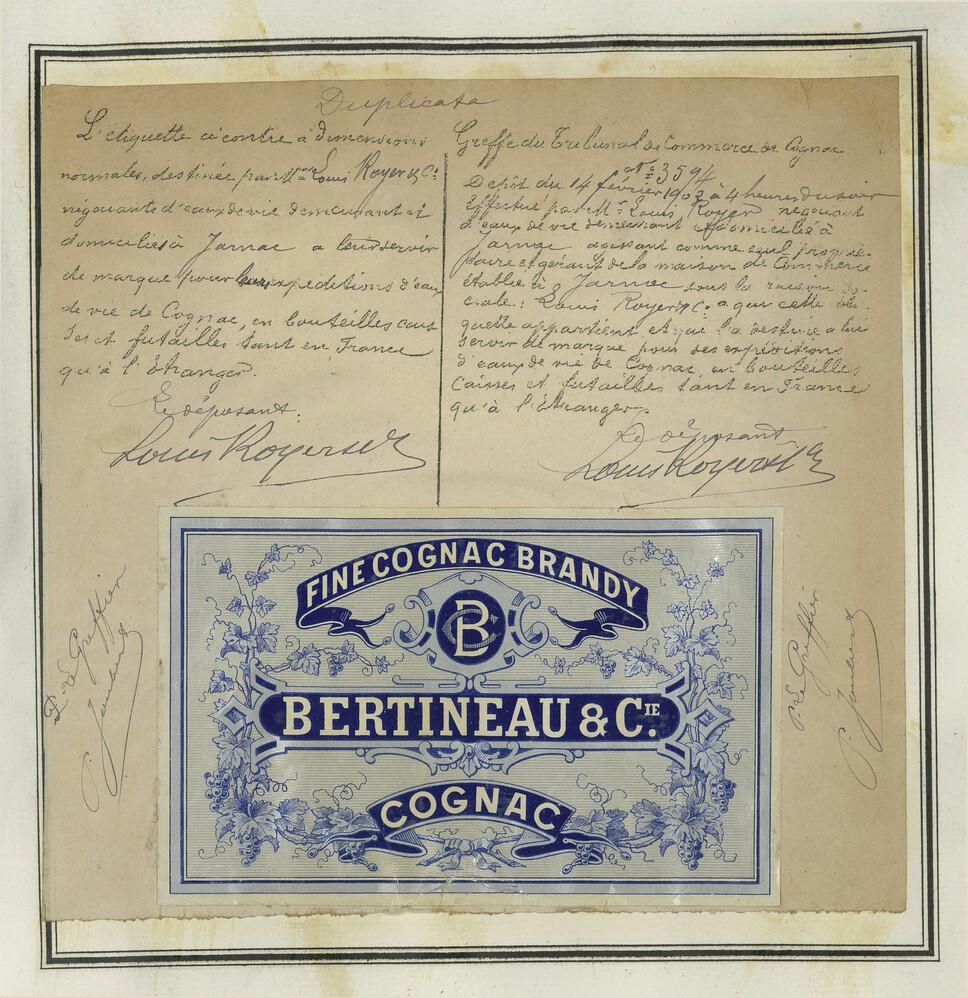 Duplicata
L'étiquette ci contre à dimensions
normales, destinée par Mr Louis Royer & Cie
négociants d'eaux de vie demeurant et
domiciliés à Jarnac a leur servir
de marque pour leurs expéditions d'eaux
de vie de Cognac, en bouteilles cais
ses et futailles tant en France
qu'à l'Etranger.
Le déposant.
Louis Royer & Cie
Greffe du Tribunal de Commerce de Cognac
No 3594
Dépôt du 14 février 1903 à 4 heures du soir
Effectué par Mr Louis Royer négociant
d'eaux de vie demeurant et domicilié à
Jarnac agissant comme seul proprié-
taire et gérant de la maison de Commerce
établie à Jarnac sous la raison so-
ciale: Louis Royer & Cie a qui cette éti-
quette appartient et qui l'a destine a lui
servir de marque pour ses expéditions
d'eaux de vie de Cognac, en bouteilles
caisses et futailles tant en France
qu'à l'Etranger.
Le déposant
Louis Royer & Cie
P. Le Greffier
P. Le Greffier
FINE COGNAC BRANDY
BC
BERTINEAU & CIE.
COGNAC